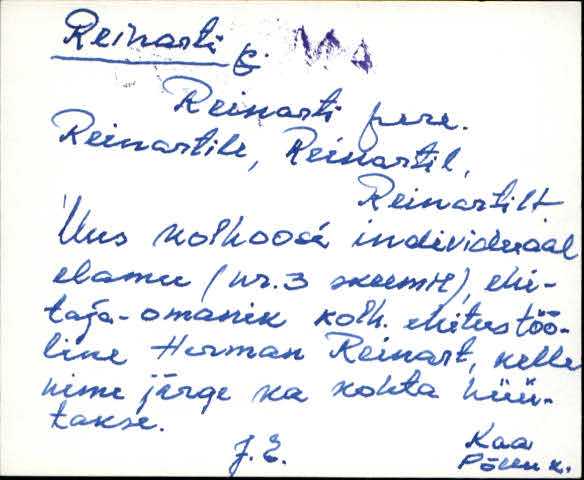 Reinarti
Reinarti pere.
Reinartile, Reinartil,
Reinartilt
Uus kolhoosi individuaal
elamu (nr. 3 skeemil), ehi-
taja-omanik kolh. ehitustöö-
line Herman Reinart, kelle
nime järge ka kohta hüü-
takse.
J. E.
Kaa
Põllu k.